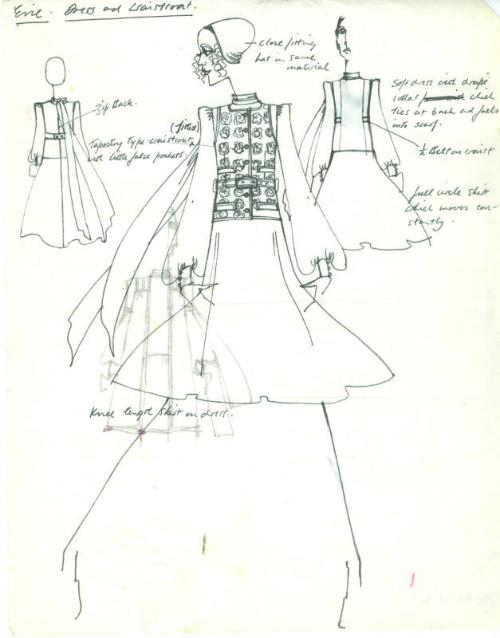 Evie. Dress and Waistcoat.
close fitting
hat in same
material
Zip Back.
(fitted)
Tapestry type waistcoat
with little false pockets.
Soft dress with drape
collar which
ties at back and falls
into scarf.
½ Belt on waist
full circle skirt
which moves con-
stantly.
Knee length skirt on dress.